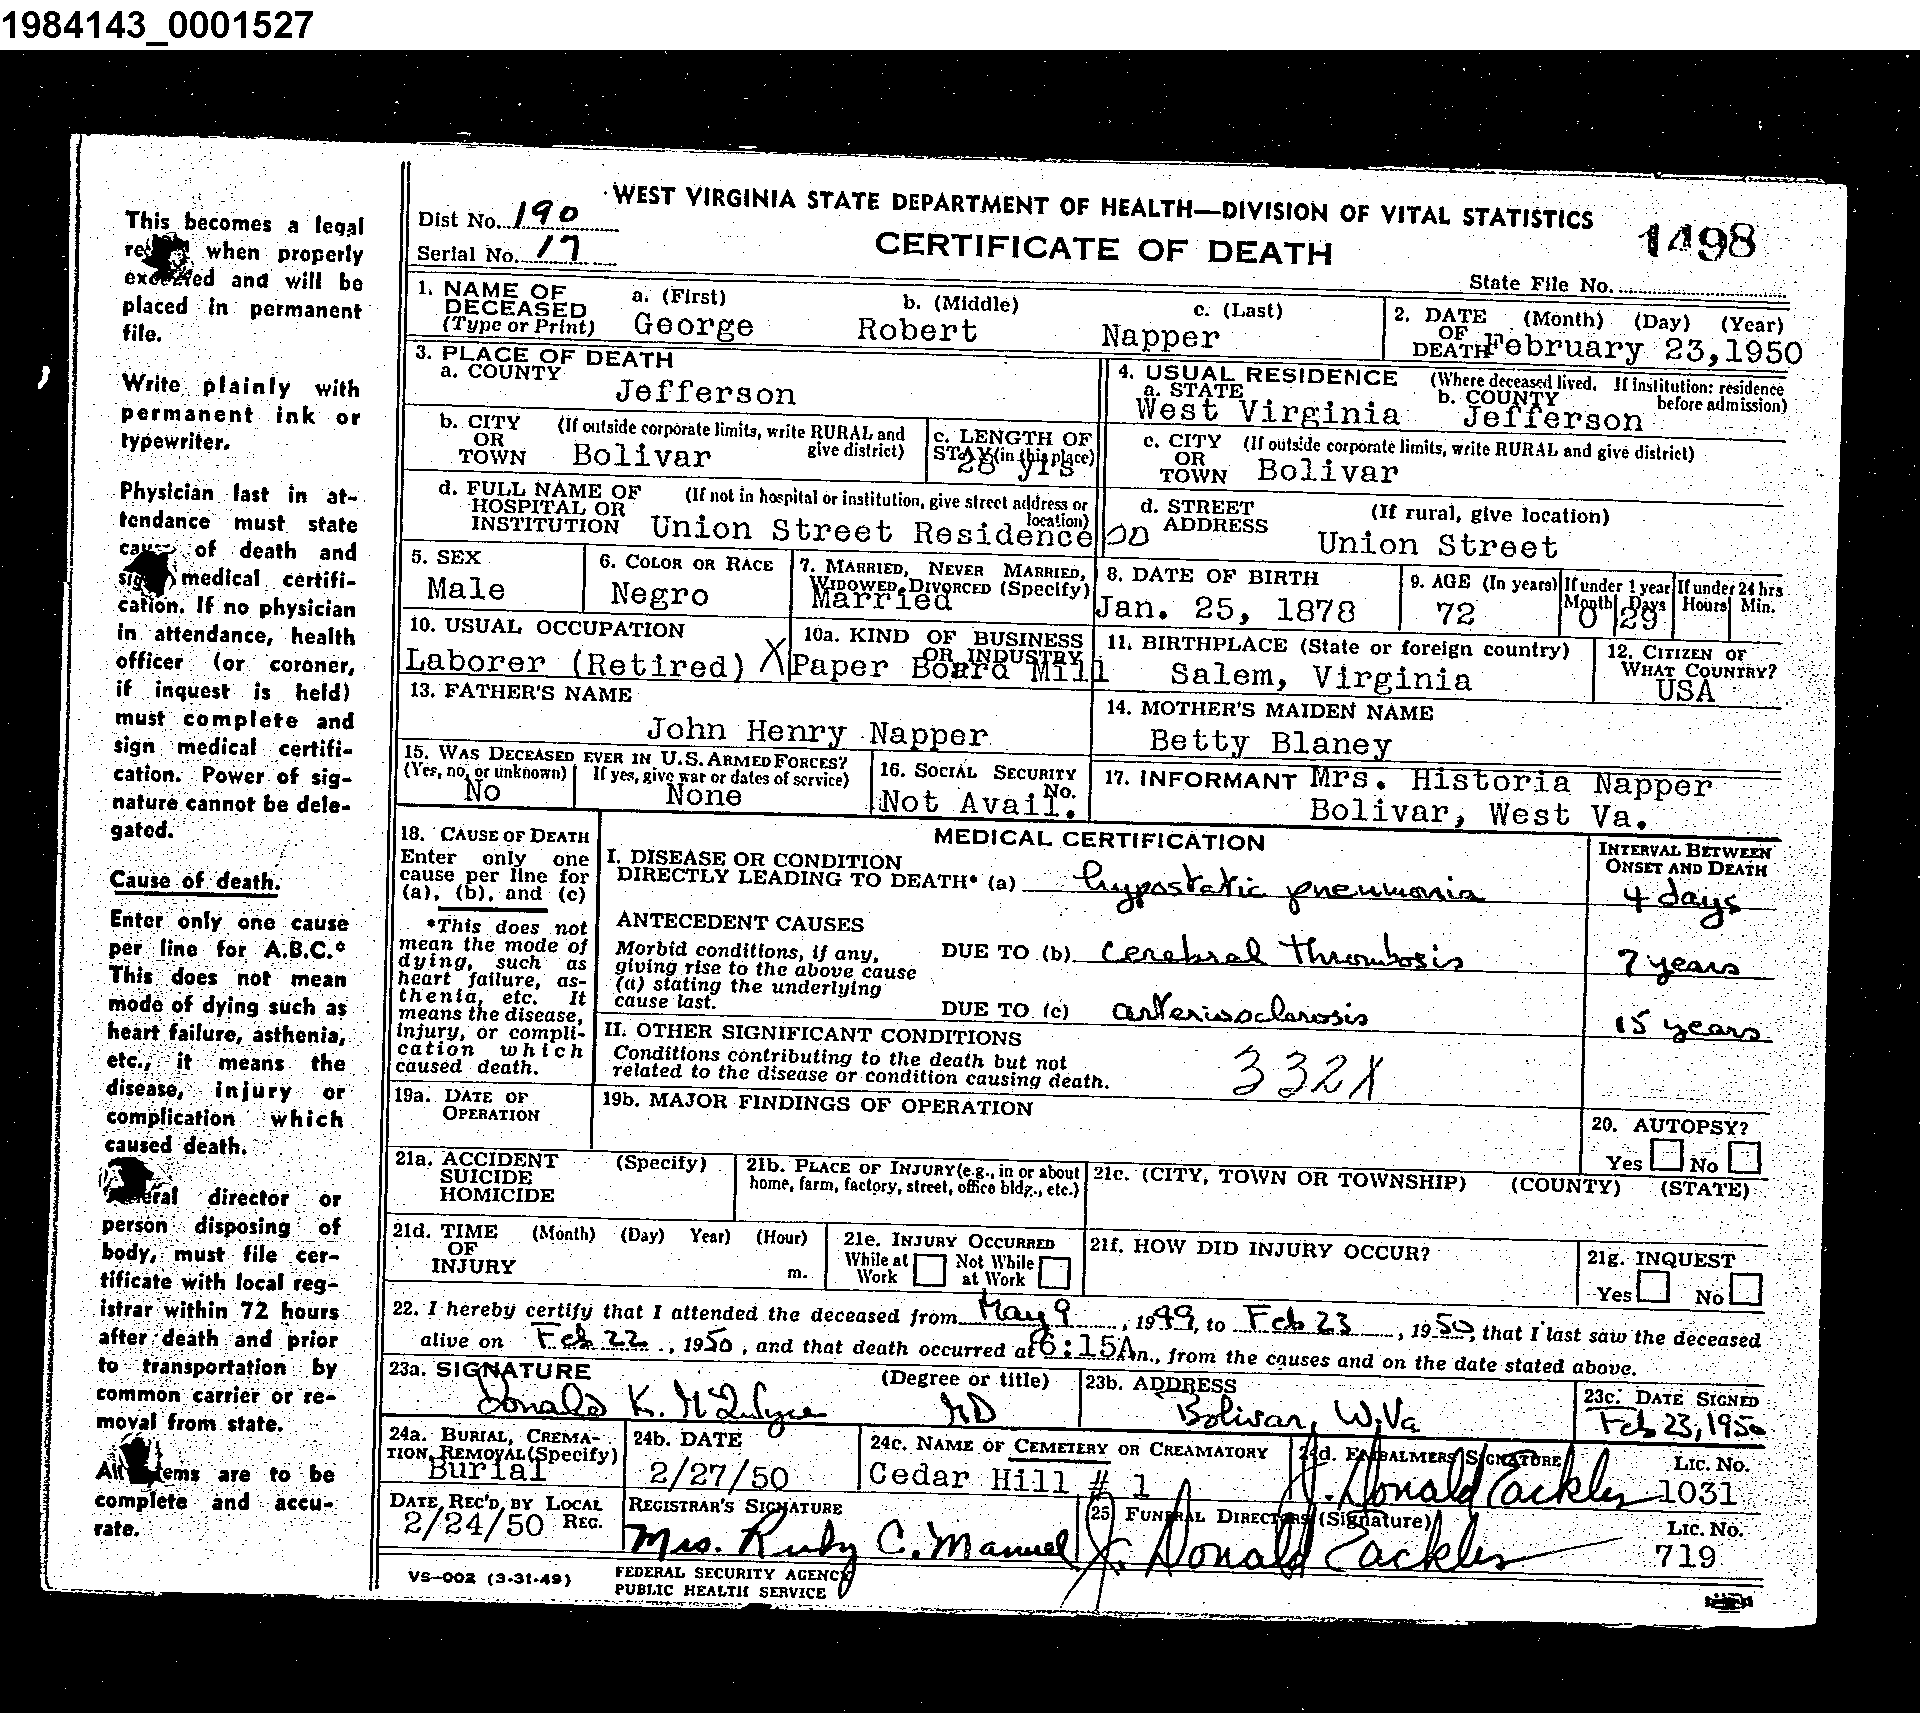 1984143_0001527
This becomes a legal
when properly
and will be
placed in permanent
file.
Write plainly with
permanent ink or
typewriter.
Physician last in at-
tendance must state
of death and
medical certifi-
cation. If no physician
in attendance, health
officer (or coroner,
if inquest is held)
must complete and
sign medical certifi-
cation. Power of sig-
nature cannot be dele-
gated.
Cause of death.
Enter only one cause
per line for A.B.C.*
This does not mean
mode of dying such as
heart failure, asthenia,
etc., it means the
disease, injury or
complication which
caused death.
director or
person disposing of
body, must file cer-
tificate with local reg-
istrar within 72 hours
after death and prior
to transportation by
common carrier or re-
moval from state.
are to be
complete and accu-
rate.
Dist No. 190
WEST VIRGINIA STATE DEPARTMENT OF HEALTH—DIVISION OF VITAL STATISTICS
Serial No. 17
CERTIFICATE OF DEATH
1498
State File No.
1. NAME OF DECEASED (Type or Print)
a. (First) b. (Middle) c. (Last)
George Robert Napper
2. DATE OF DEATH (Month) (Day) (Year)
February 23, 1950
3. PLACE OF DEATH
a. COUNTY
Jefferson
4. USUAL RESIDENCE (Where deceased lived. If institution: residence before admission)
a. STATE b. COUNTY
West Virginia Jefferson
b. CITY OR TOWN (If outside corporate limits, write RURAL and give district)
Bolivar
c. LENGTH OF STAY (in this place)
28 yrs
c. CITY OR TOWN (If outside corporate limits, write RURAL and give district)
Bolivar
d. FULL NAME OF HOSPITAL OR INSTITUTION (If not in hospital or institution, give street address or location)
Union Street Residence
d. STREET ADDRESS (If rural, give location)
Union Street
5. SEX
Male
6. COLOR OR RACE
Negro
7. MARRIED, NEVER MARRIED, WIDOWED, DIVORCED (Specify)
Married
8. DATE OF BIRTH
Jan. 25, 1878
9. AGE (In years)
72
If under 1 year
Month Days
0 29
If under 24 hrs
Hours Min.
10. USUAL OCCUPATION
Laborer (Retired) X
10a. KIND OF BUSINESS OR INDUSTRY
Paper Board Mill
11. BIRTHPLACE (State or foreign country)
Salem, Virginia
12. CITIZEN OF WHAT COUNTRY?
USA
13. FATHER'S NAME
John Henry Napper
14. MOTHER'S MAIDEN NAME
Betty Blaney
15. WAS DECEASED EVER IN U.S. ARMED FORCES?
(Yes, no, or unknown) If yes, give war or dates of service)
No None
16. SOCIAL SECURITY No.
Not Avail.
17. INFORMANT Mrs. Historia Napper
Bolivar, West Va.
18. CAUSE OF DEATH
Enter only one
cause per line for
(a), (b), and (c)
*This does not
mean the mode of
dying, such as
heart failure, as-
thenia, etc. It
means the disease,
injury, or compli-
cation which
caused death.
MEDICAL CERTIFICATION
INTERVAL BETWEEN ONSET AND DEATH
I. DISEASE OR CONDITION
DIRECTLY LEADING TO DEATH* (a) hypostatic pneumonia 4 days
ANTECEDENT CAUSES
Morbid conditions, if any,
giving rise to the above cause
(a) stating the underlying
cause last.
DUE TO (b) cerebral thrombosis 7 years
DUE TO (c) arteriosclerosis 15 years
II. OTHER SIGNIFICANT CONDITIONS
Conditions contributing to the death but not
related to the disease or condition causing death.
332X
19a. DATE OF OPERATION
19b. MAJOR FINDINGS OF OPERATION
20. AUTOPSY?
Yes No
21a. ACCIDENT SUICIDE HOMICIDE (Specify)
21b. PLACE OF INJURY (e.g., in or about
home, farm, factory, street, office bldg., etc.)
21c. (CITY, TOWN OR TOWNSHIP) (COUNTY) (STATE)
21d. TIME OF INJURY (Month) (Day) Year) (Hour)
m.
21e. INJURY OCCURRED
While at Work Not While at Work
21f. HOW DID INJURY OCCUR?
21g. INQUEST
Yes No
22. I hereby certify that I attended the deceased from May 9, 1949, to Feb 23, 1950, that I last saw the deceased
alive on Feb 22, 1950, and that death occurred at 6:15A m., from the causes and on the date stated above.
23a. SIGNATURE (Degree or title)
Donald K. McIntyre MD
23b. ADDRESS
Bolivar, W.Va
23c. DATE SIGNED
Feb 23, 1950
24a. BURIAL, CREMA-
TION, REMOVAL (Specify)
Burial
24b. DATE
2/27/50
24c. NAME OF CEMETERY OR CREAMATORY
Cedar Hill # 1
24d. EMBALMERS SIGNATURE
J. Donald Eackles
Lic. No.
1031
DATE REC'D BY LOCAL REG.
2/24/50
REGISTRAR'S SIGNATURE
Mrs. Ruby C. Manuel
25 FUNERAL DIRECTORS (Signature)
J. Donald Eackles
Lic. No.
719
VS—002 (3-31-49)
FEDERAL SECURITY AGENCY
PUBLIC HEALTH SERVICE